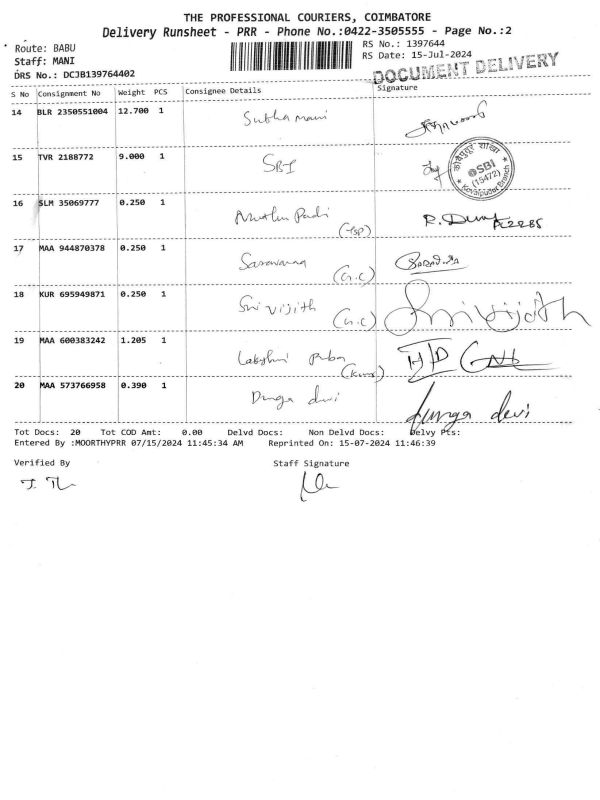 THE PROFESSIONAL COURIERS, COIMBATORE
Delivery Runsheet - PRR - Phone No.:0422-3505555 - Page No.:2
Route: BABU
RS No.: 1397644
Staff: MANI
RS Date: 15-Jul-2024
DRS No.: DCJB139764402
DOCUMENT DELIVERY
S No Consignment No Weight PCS Consignee Details Signature
14 BLR 2350551004 12.700 1 Subha mani
15 TVR 2188772 9.000 1 SBI
कोवैपुदूर शाखा
SBI
(15472)
Kovaipudur Branch
16 SLM 35069777 0.250 1
(Tsp) R.
17 MAA 944870378 0.250 1 Saravana
(G.C)
18 KUR 695949871 0.250 1 Sri vijith Srivijith
(G.C)
19 MAA 600383242 1.205 1 Lakshmi
20 MAA 573766958 0.390 1 Durga devi Durga devi
Tot Docs: 20 Tot COD Amt: 0.00 Delvd Docs: Non Delvd Docs: Delvy Pts:
Entered By :MOORTHYPRR 07/15/2024 11:45:34 AM Reprinted On: 15-07-2024 11:46:39
Verified By Staff Signature